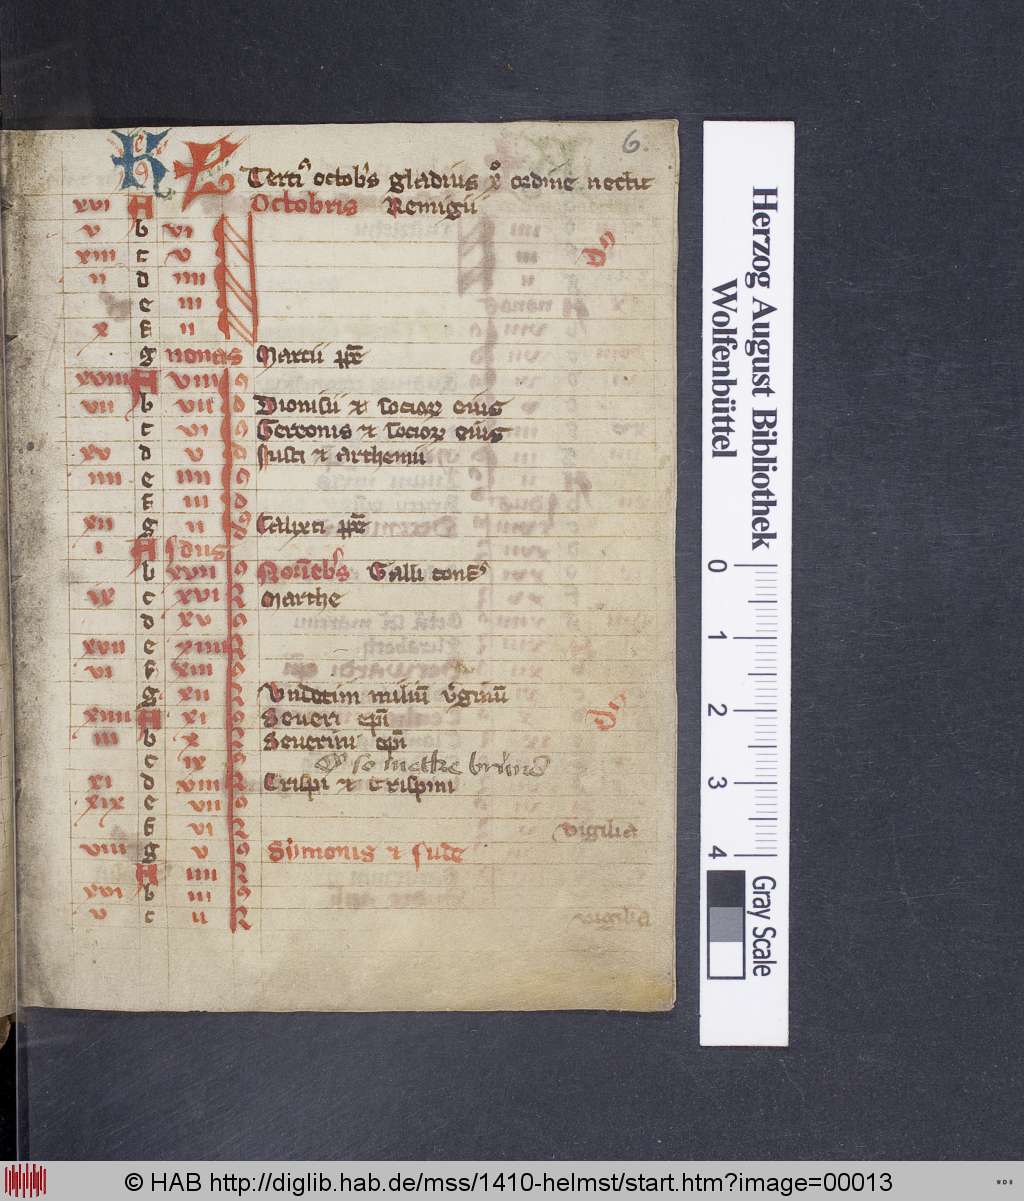 6.
KL Terci9 octobs gladius x ordine nectit
xvi A Octobris Remigii
v b vi
xiii c v
ii d iiii
e iii
x f ii
g nonas Marcii pp
xviii A viii
vii b vii Dionisii et socior eius
c vi Gereonis et socior eius
xv d v Justi et arthemii
iiii e iiii
f iii
xii g ii Calixti pp
i A Idus
b xvii Novebs Galli conf
ix c xvi Marthe
d xv
xvii e xiiii
vi f xiii
g xii Undecim miliū v̓ginū
xiiii A xi Seueri epi
iii b x Seuerini epi
c ix
xi d viii Crispi et Crispini
xix e vii
f vi vigilia
viii g v Symonis et Jude
A iiii
xvi b iii
v c ii vigilia
Herzog August Bibliothek
Wolfenbüttel
0 1 2 3 4
Gray Scale
© HAB http://diglib.hab.de/mss/1410-helmst/start.htm?image=00013